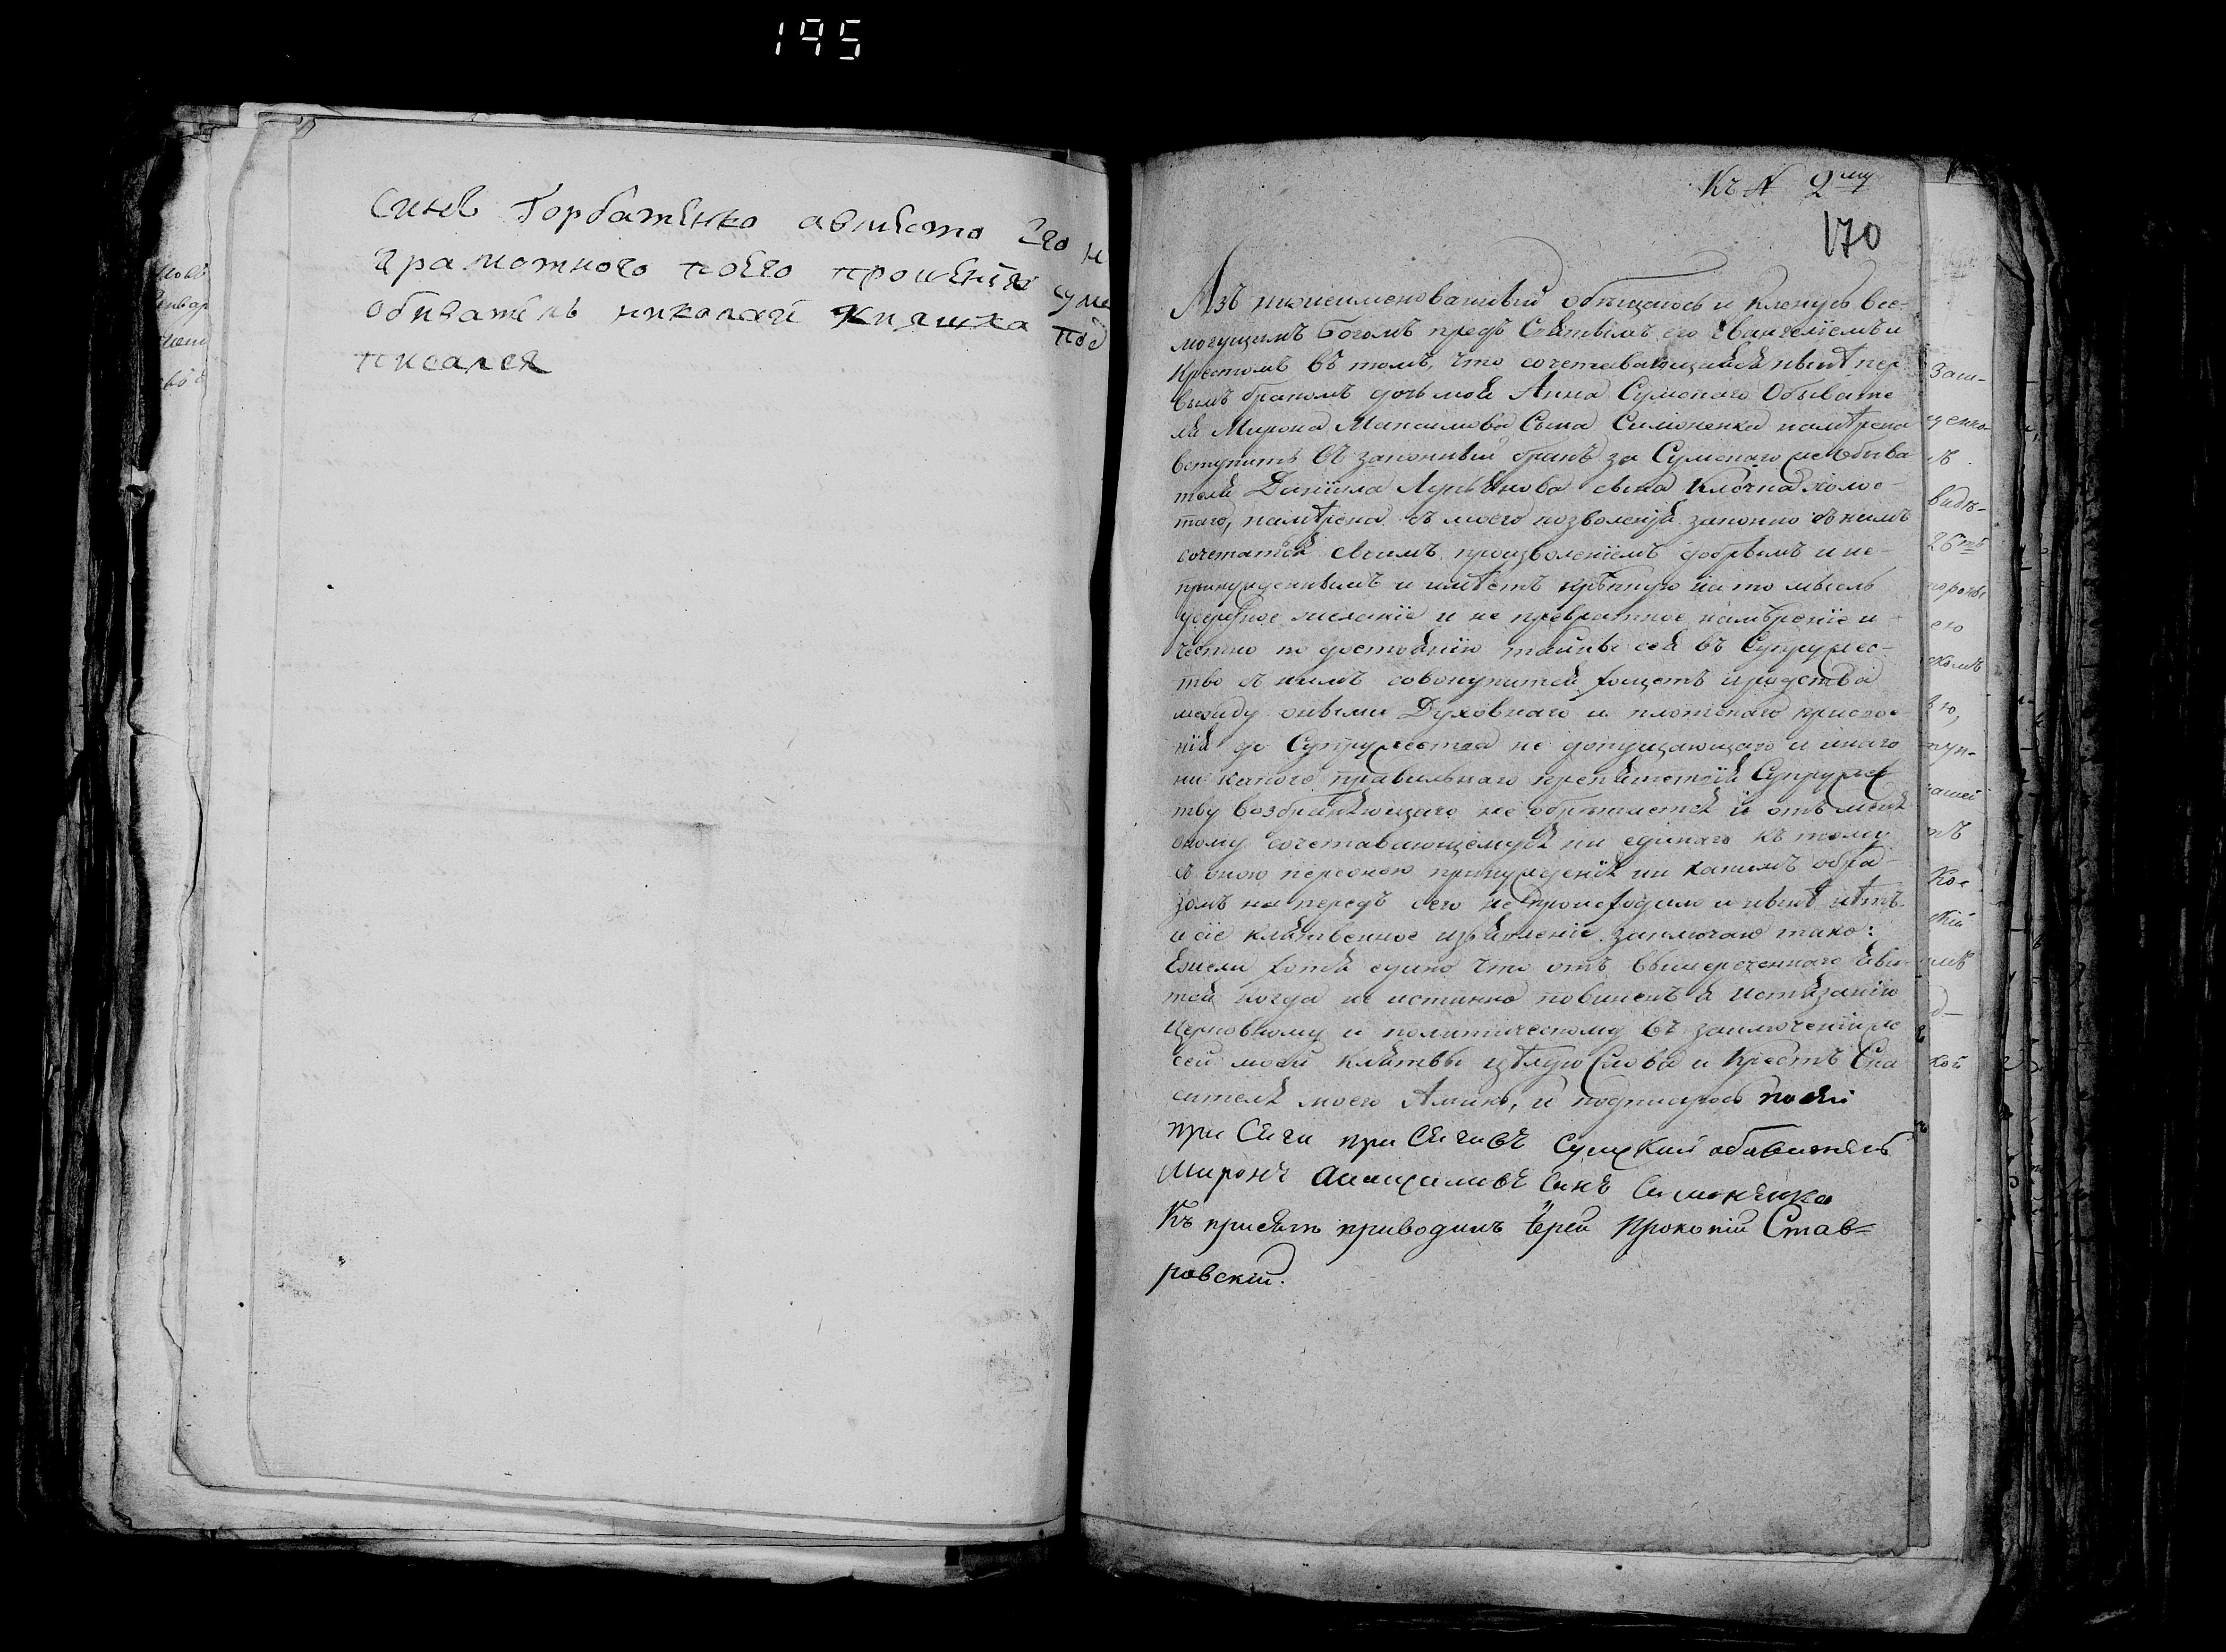 195
синъ Горбатѣнко авмѣсто Его не
грамотного поѣго прошению суме
обиватѣль николай Княшко под
писался
Къ N 2му
170
Азъ нижеименованный обѣщаюсь и кленусь все-
могущимъ Богомъ предъ Святымъ его Евангелїемъ и
крестомъ въ томъ, что сочетавающаяся нынѣ пер-
вымъ бракомъ дочь моя Анна Сумскаго Обывате
ля Мирона Максимова Сына Симоненка намѣрена
вступить въ законный бракъ за Сумскаго же обыва
теля Данїила Лукянова сына Клочка холос-
таго, намѣрена съ моего позволенїя законно съ нимъ
сочетатся своимъ произволенїемъ добрымъ и не-
принужденнымъ и имѣетъ крѣпкую на то мысль
усердное желанїе и не превратное намѣренїе и
честно по достоянїю тайны сея въ Супружес-
тво съ нимъ совокупится хощетъ и родства
между оными Духовнаго и плотскаго присвое-
нїя до Супружества не допущающаго и инаго
ни какого правильнаго препятствїя Супружес
тву возбраняющаго не обрѣтается и отъ меня
оному сочетавающемуся ни единаго къ тому
съ оною персоною принужденїя ни какимъ обра-
зомъ на передъ сего не происходило и нынѣ нѣтъ
и сїе клятвенное изъявленїе заключаю тако:
Ежели хотя едино что отъ вышереченнаго яви-
тся когда не истинно повиненъ я истязанїю
Церковному и политическому въ заключенїи же
сей моей клятвы цѣлую Слова и Крестъ Спа
сителя моего Аминь, и подписуюсь
при Сяги Сумской обиватѣль
Миронъ синъ Симонѣнко
Къ присягѣ приводилъ їерей Прокопїй Став=
ровскїй.